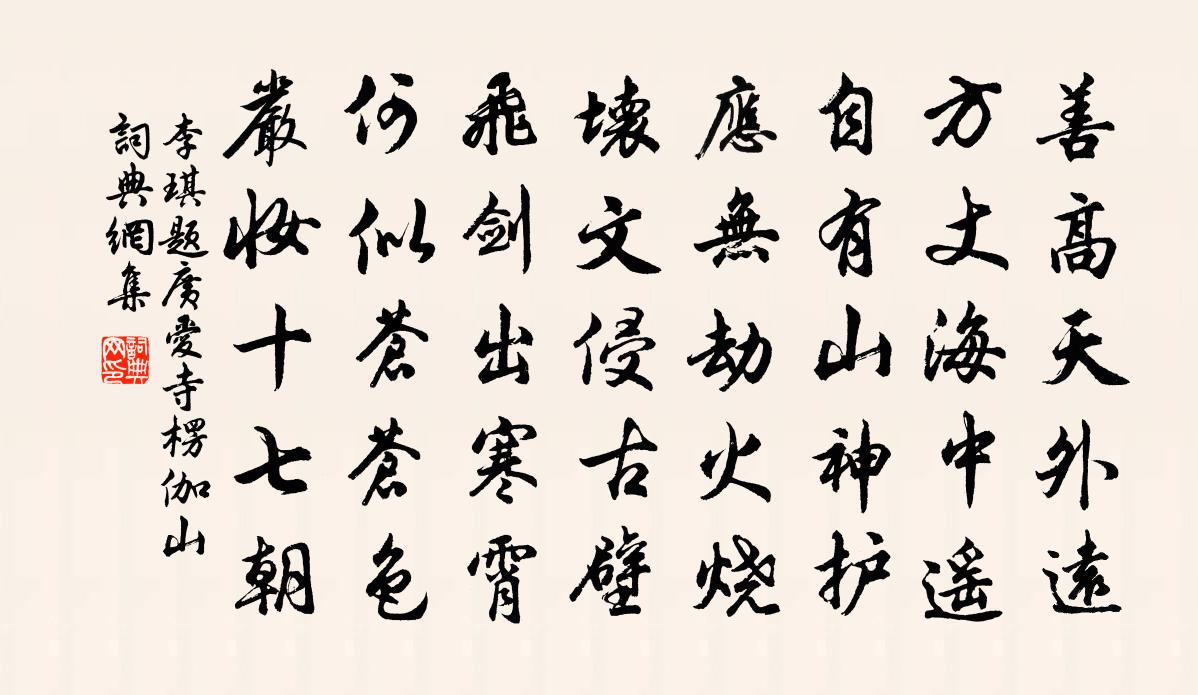 善高天外遠
方丈海中遥
自有山神护
應無劫火烧
壊文侵古壁
飛剑出寒霄
何似苍苍色
嚴妝十七朝
李琪题廣愛寺楞伽山
詞典網集
詞典网印